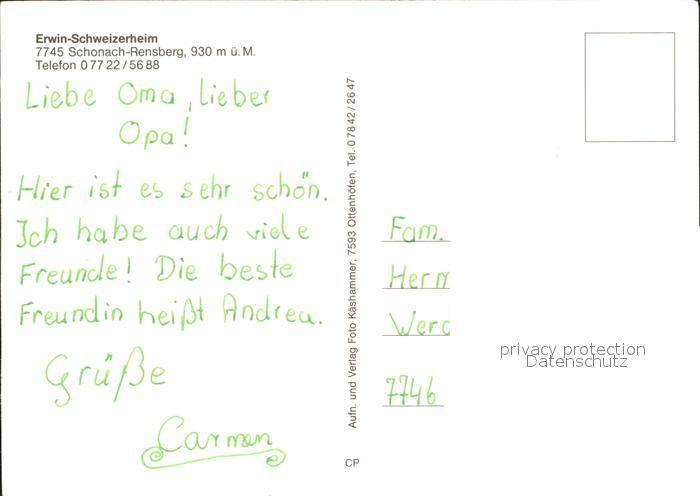 Erwin-Schweizerheim
7745 Schonach-Rensberg, 930 m ü. M.
Telefon 0 77 22 / 56 88
Liebe Oma, lieber
Opa!
Hier ist es sehr schön.
Ich habe auch viele
Freunde! Die beste
Freundin heißt Andrea.
Grüße
Carmen
Aufn. und Verlag Foto Käshammer, 7593 Ottenhöfen, Tel. 0 78 42 / 26 47
CP
Fam.
Herm
Werd
7746
privacy protection
Datenschutz